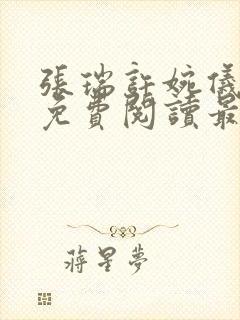 張瑞許婉儀
免費閱讀最
蔣星夢